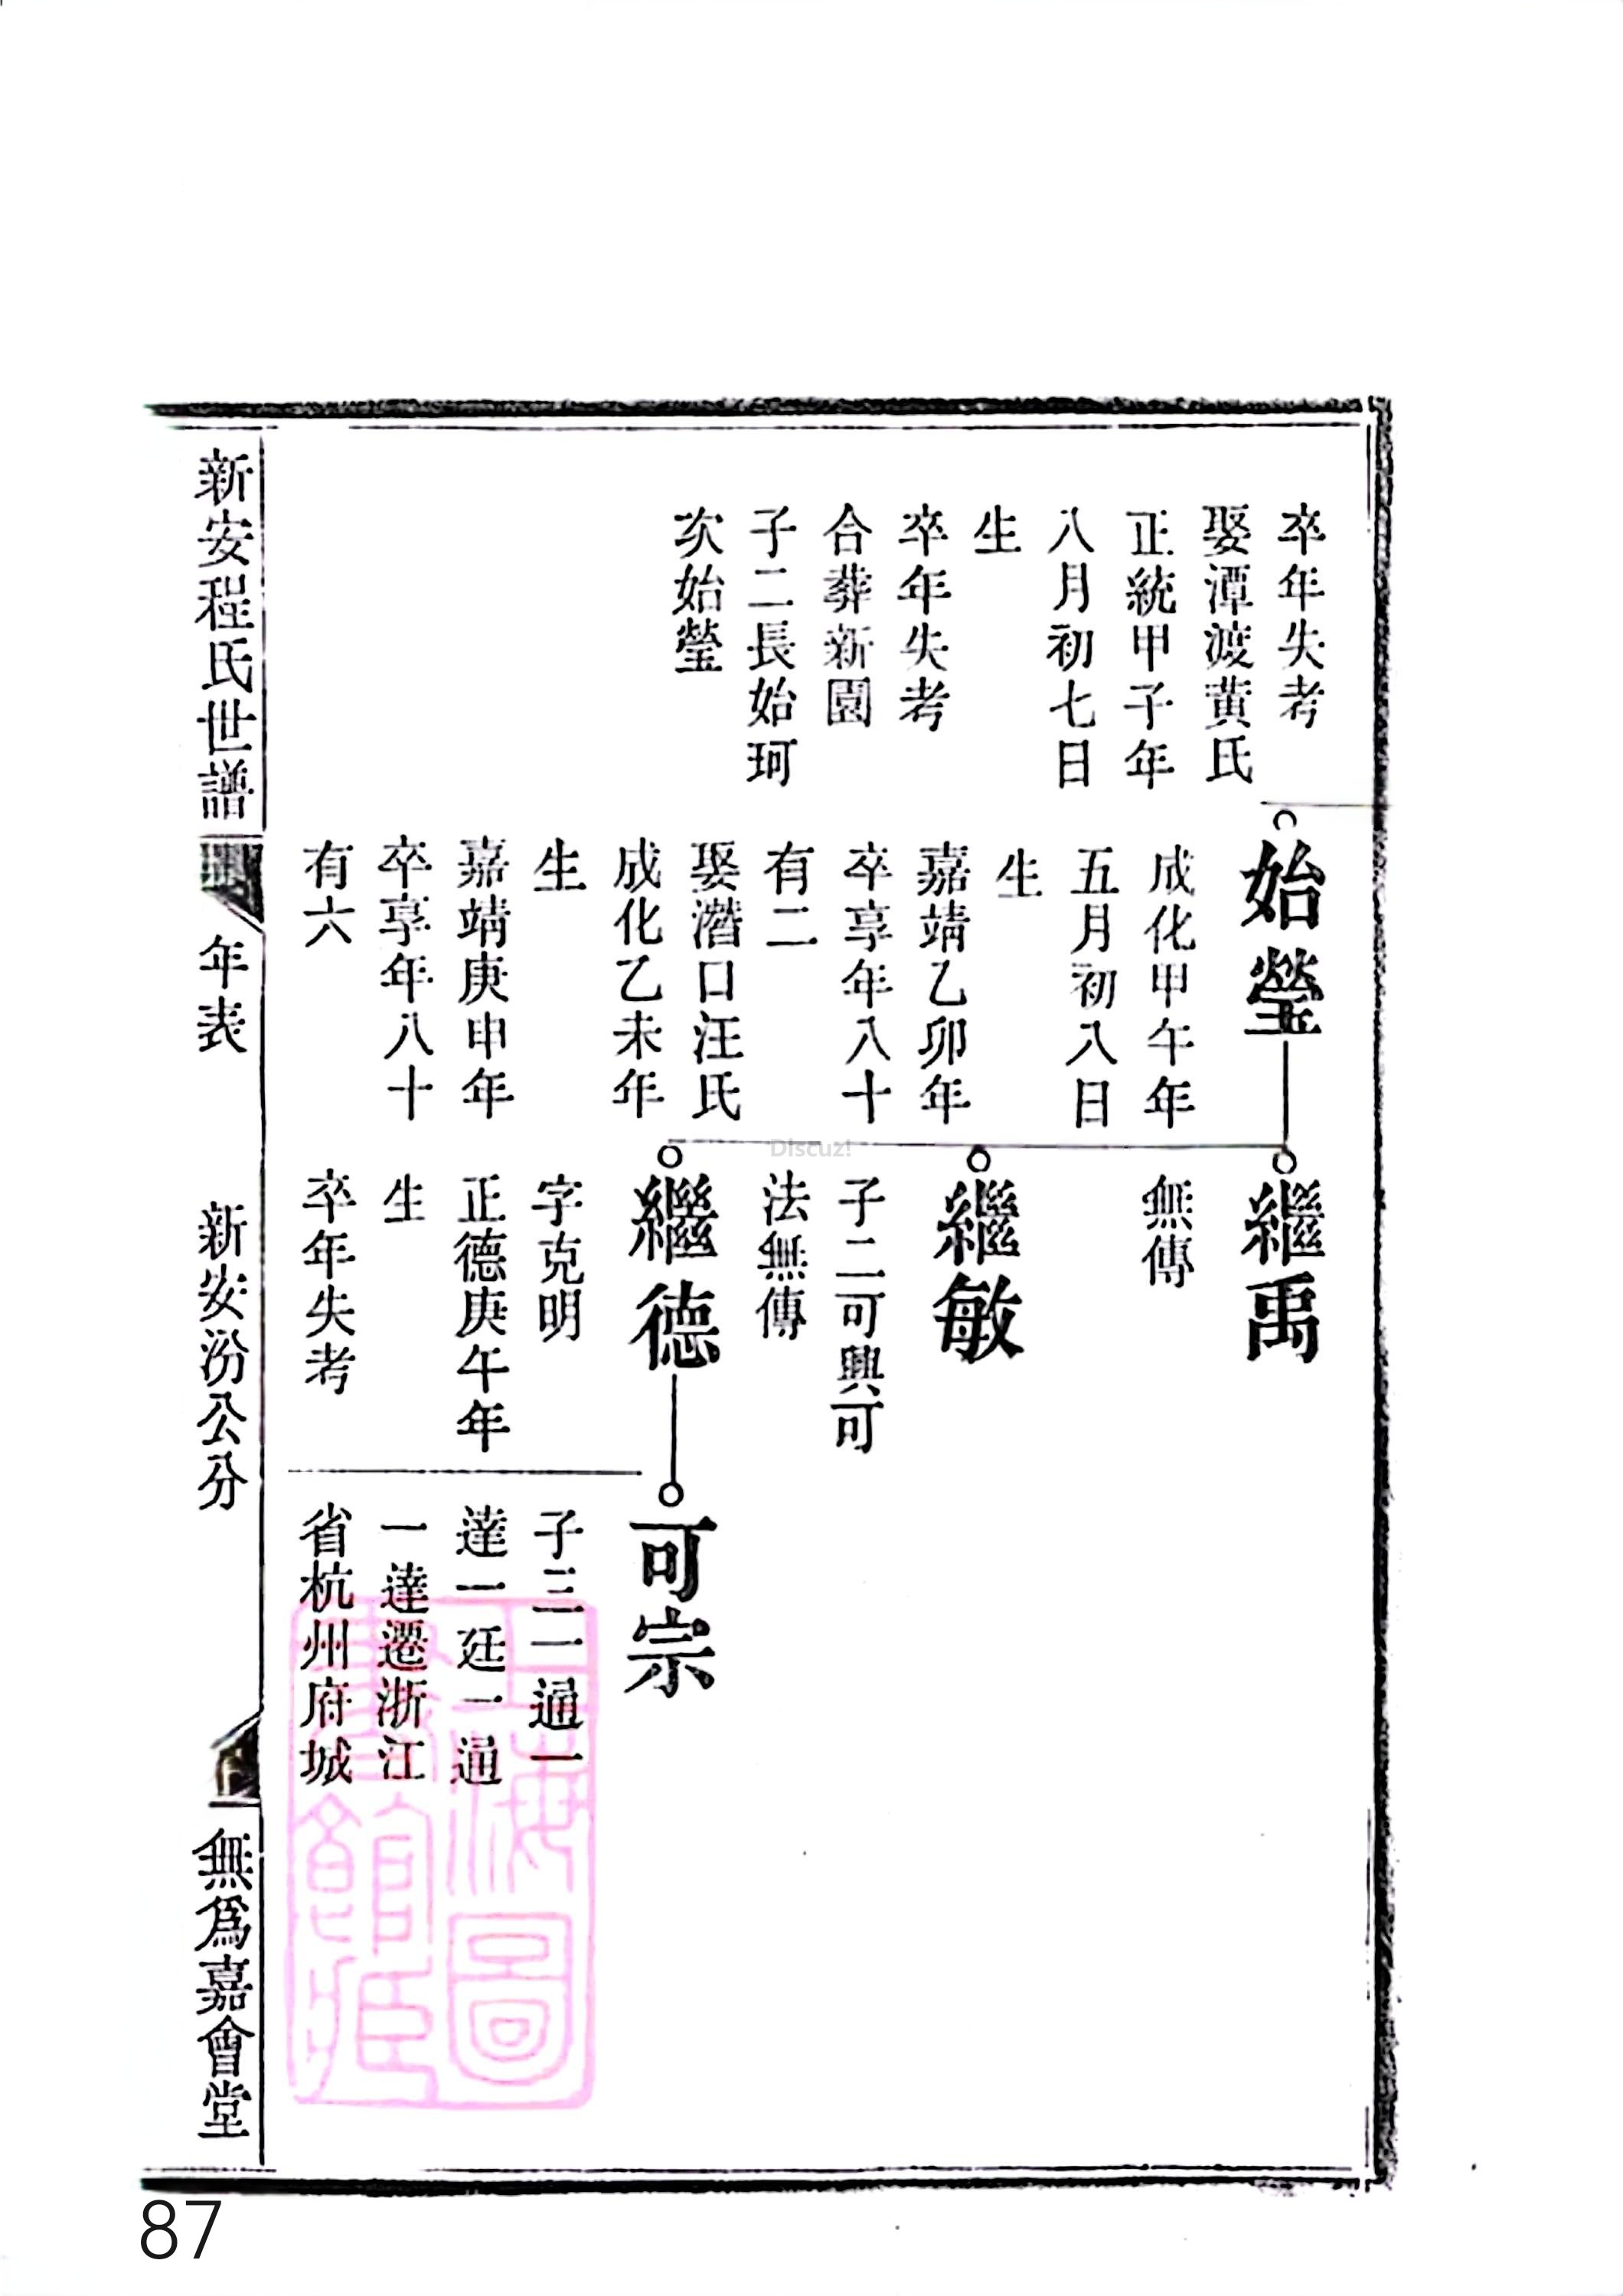 卒年失考
娶潭渡黃氏
正統甲子年
八月初七日
生
卒年失考
合葬新園
子二長始珂
次始瑩
始瑩
成化甲午年
五月初八日
生
嘉靖乙卯年
卒享年八十
有二
娶潛口汪氏
成化乙未年
生
嘉靖庚申年
卒享年八十
有六
繼禹
無傳
繼敏
子二可興可
法無傳
繼德
字克明
正德庚午年
生
卒年失考
可宗
子三一通一
達一廷一通
一達遷浙江
省杭州府城
新安程氏世譜
年表
新安汾公分
無爲嘉會堂
上海圖
書館藏
Discuz!
87